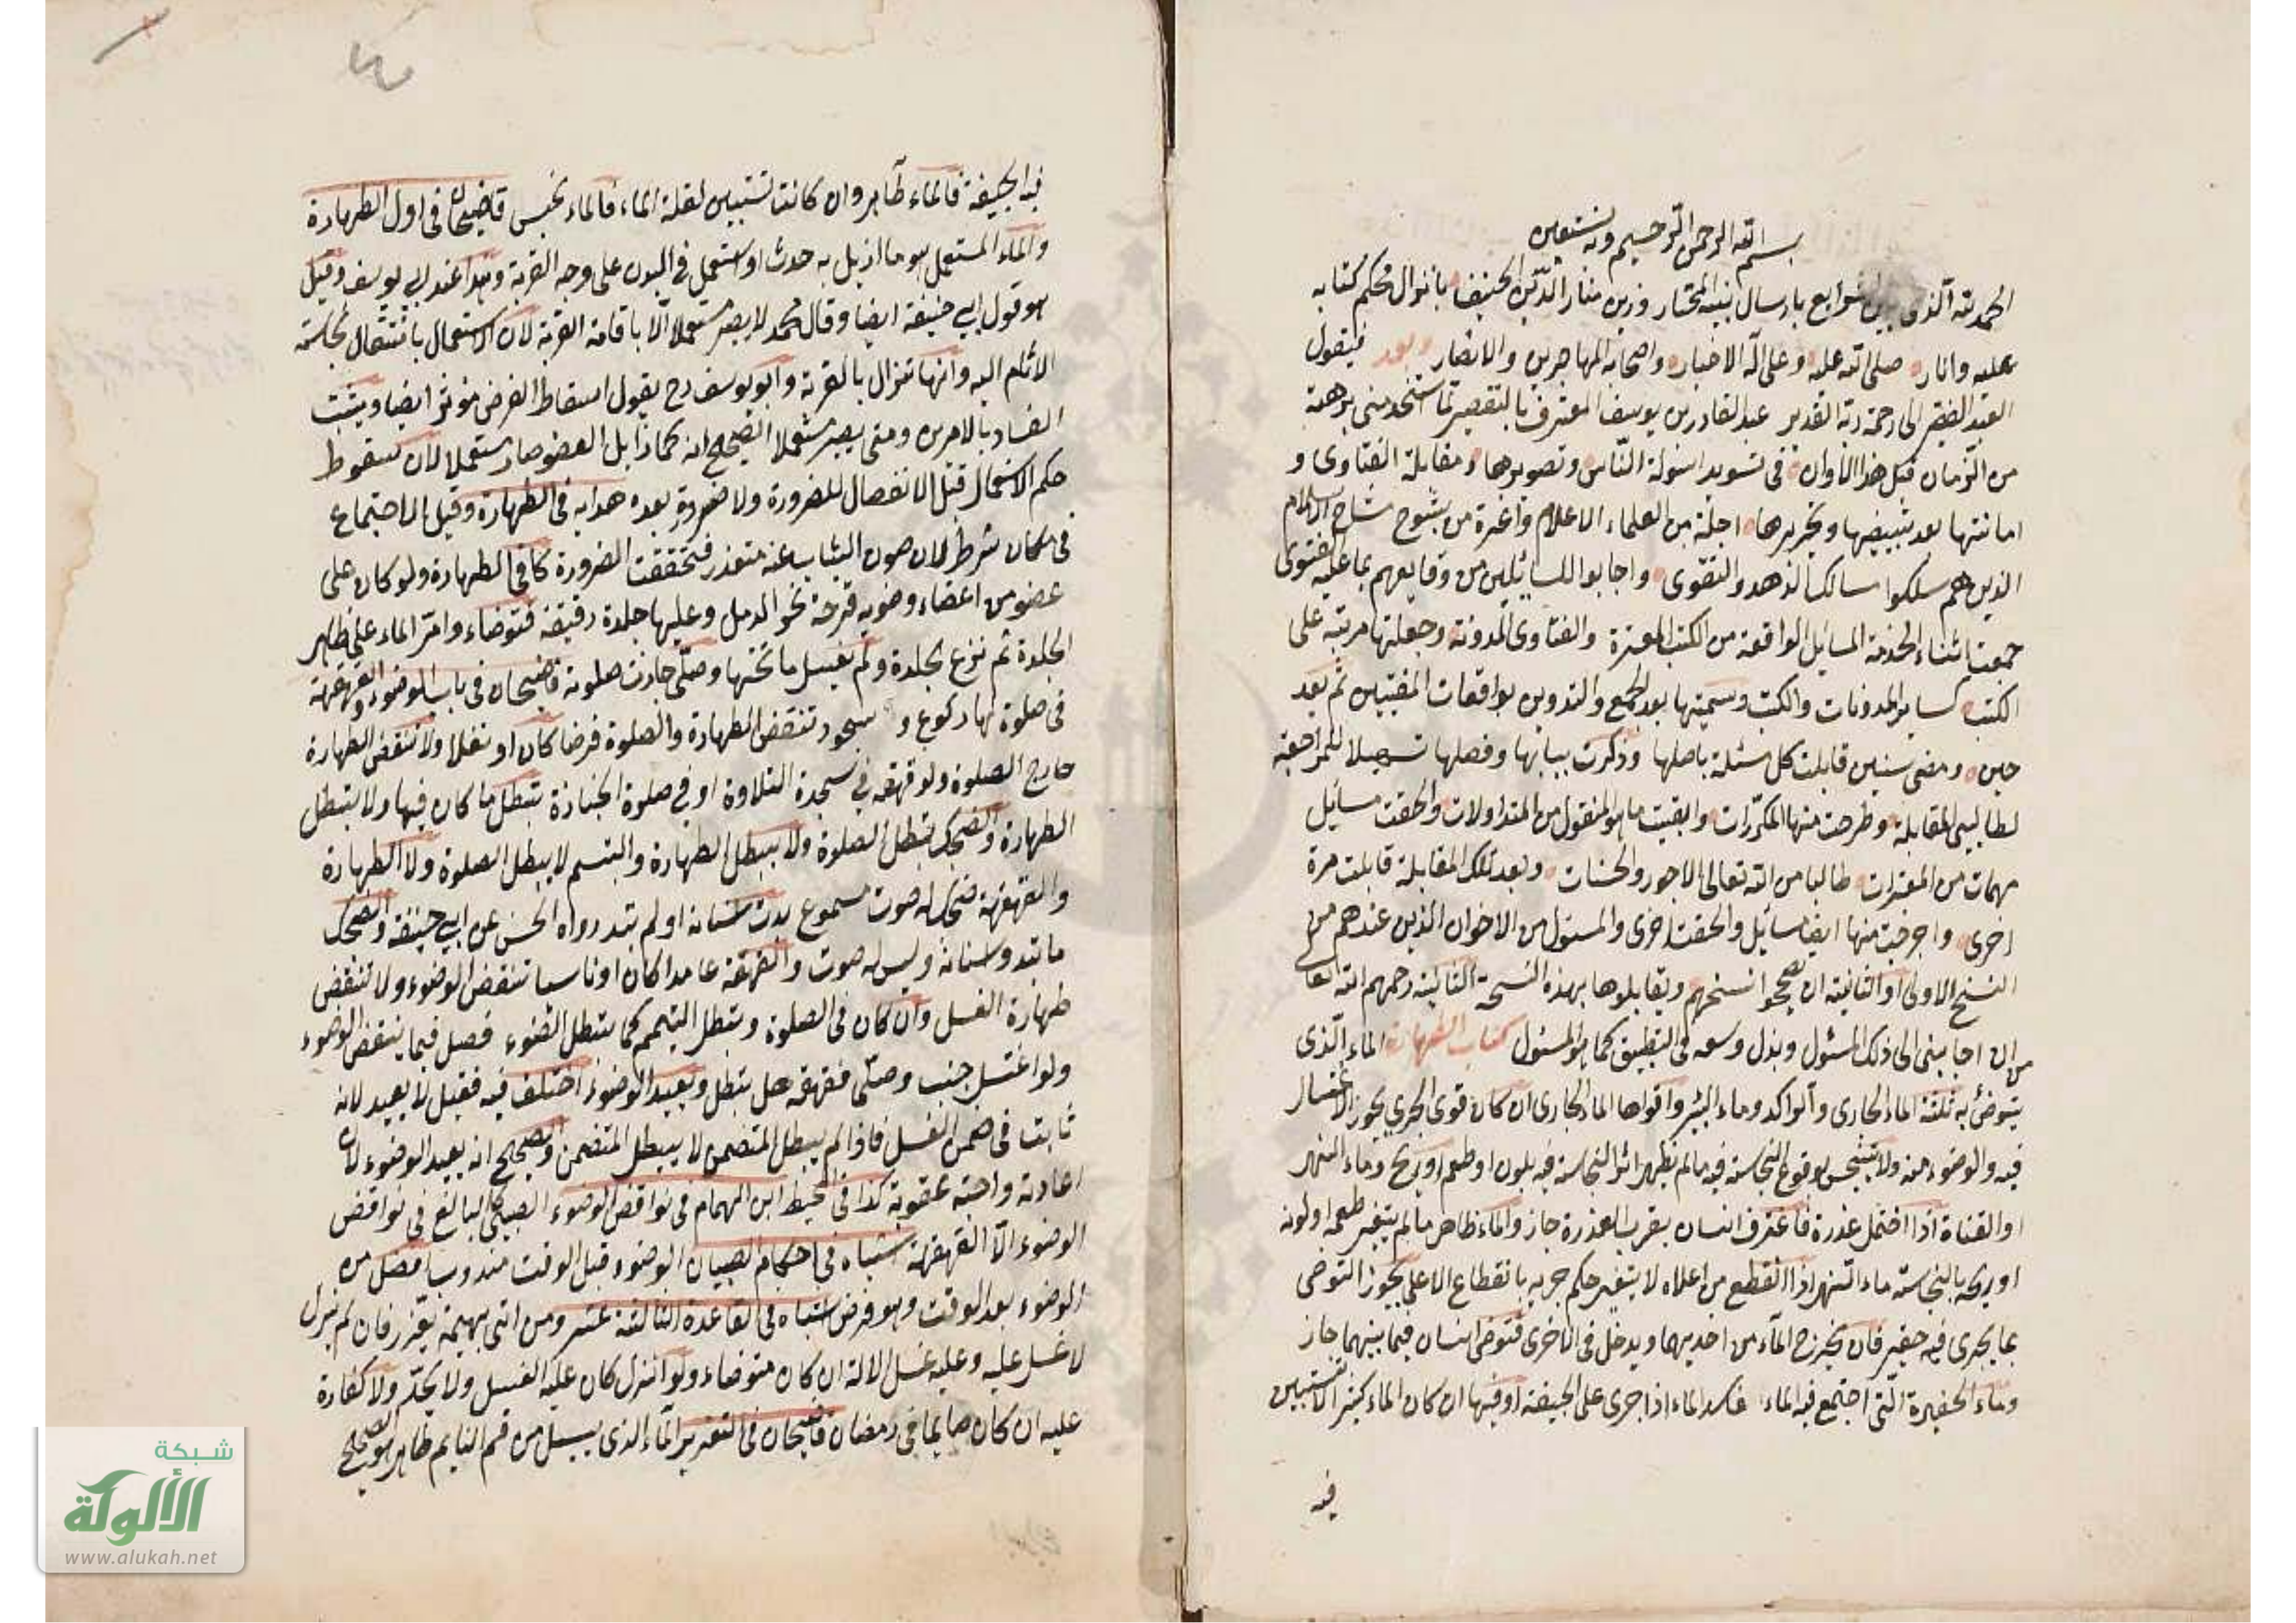 بسم الله الرحمن الرحيم وبه نستعين
الحمد لله الذي بين الشرايع بارسال نبيه المختار وزين منار الدين الحنيف بانزال محكم كتابه
عليه وانار صلى الله عليه وعلى آله الاخيار واصحابه المهاجرين والانصار وبعد فيقول
العبد الفقير الى رحمة ربه القدير عبد القادر بن يوسف المعترف بالتقصير لما استخدمني برهة
من الزمان قبل هذا الاوان في تسويد اسئولة الناس وتصويرها ومقابلة الفتاوى و
امانتها بعد تبييضها وتحريرها اجلة من العلماء الاعلام واعزة من شيوخ مشايخ الاسلام
الذين هم سلكوا مسالك الزهد والتقوى واجابوا للسائلين من وقايعهم بما عليه الفتوى
جمعت اثناء الخدمة المسائل الواقعة من الكتب المعتبرة والفتاوى المدونة وجعلتها مرتبة على
الكتب كساير المدونات والكتب وسميتها بعد الجمع والتدوين بواقعات المفتيين ثم بعد
حين ومضى سنين قابلت كل مسئلة باصلها وذكرت بيابها وفصلها تسهيلا للمراجعة
لطالبي المقابلة وطرحت منها المكررات وابقيت ما هو المنقول من المتداولات والحقت مسائل
مهمات من المعتبرات طالبا من الله تعالى الاجور والحسنات وبعد تلك المقابلة قابلت مرة
اخرى واخرجت منها ايضا مسائل والحقت اخرى والمسئول من الاخوان الذين عندهم من
النسخ الاولى او الثانية ان يصححوا نسخهم ويقابلوها بهذه النسخة الثالثة رحمهم الله تعا
من ان اجابني الى ذلك المسئول وبذل وسعه في التطبيق كما هو المسئول كتاب الطهارة الماء الذي
يتوضئ به ثلثة الماء الجاري والراكد وماء البئر واقواها الماء الجاري ان كان قوي الجري يجوز الاغتسال
فيه والوضوء منه ولا يتنجس بوقوع النجاسة فيه مالم يظهر اثر النجاسة فيه بلون او طعم او ريح وماء النهر
او القناة اذا احتمل عذرة فاغترف انسان بقرب العذرة جاز والماء طاهر مالم يتغير طعمه او لونه
او ريحه بالنجاسة ماء النهر اذا انقطع من اعلاه لا يتغير حكم جريه بانقطاع الاعلى يجوز التوضي
بما يجرى فيه حفير فان يخرج الماء من احديهما ويدخل في الاخرى فتوضأ انسان فيما بينهما جاز
وماء الحفيرة التي اجتمع فيه الماء فاسد الماء اذا جرى على الجيفة او فيها ان كان الماء كثيرا لا تستبين
فيه
فيه الجيفة فالماء طاهر وان كانت تستبين لقلة الماء فالماء نجس قاضيخان في اول الطهارة
والماء المستعمل هو ما ازيل به حدث او استعمل في البدن على وجه القربة وهذا عند ابي يوسف وقيل
هو قول ابي حنيفة ايضا وقال محمد لا يصير مستعملا الا باقامة القربة لان الاستعمال بانتقال نجاسة
الاثام اليه وانها تزال بالقربة وابو يوسف رح يقول اسقاط الفرض مؤثر ايضا ويثبت
الفساد بالامرين ومتى يصير مستعملا الصحيح انه كما زايل العضو صار مستعملا لان سقوط
حكم الاستعمال قبل الانفصال للضرورة ولا ضرورة بعده هدايه في الطهارة وقيل الاجتماع
في مكان شرط لان صون الثياب عنه متعذر فتحققت الضرورة كافي الطهارة ولو كان على
عضو من اعضاء وضويه قرحة نحو الدمل وعليها جلدة رقيقة فتوضاء وامر الماء على ظاهر
الجلدة ثم نزع الجلدة ولم يغسل ما تحتها وصلى جازت صلوته قاضيخان في باب الوضوء والقهقهة
في صلوة لها ركوع و سجود تنقض الطهارة والصلوة فرضا كان او نفلا ولا تنقض الطهارة
خارج الصلوة ولو قهقه في سجدة التلاوة او في صلوة الجنازة تبطل ما كان فيها ولا يبطل
الطهارة والضحك يبطل الصلوة ولا يبطل الطهارة والتبسم لا يبطل الصلوة ولا الطهارة
والقهقهة ضحك له صوت مسموع بدت اسنانه او لم تبد رواه الحسن عن ابي حنيفة والضحك
ما تبدو اسنانه وليس له صوت والقهقهة عامدا كان او ناسيا تنقض الوضوء ولا تنقض
طهارة الغسل وان كان في الصلوة وتبطل التيمم كما تبطل الوضوء فصل فيما ينقض الوضوء
ولو اغتسل جنب وصلى فقهقه هل تبطل ويعيد الوضوء اختلف فيه فقيل لا يعيد لانه
ثابت في ضمن الغسل فاذا لم يبطل المتضمن لا يبطل المتضمن والصحيح انه يعيد الوضوء لان
اعادته واجبة عقوبة كذا في المحيط ابن الهمام في نواقض الوضوء الصبي كالبالغ في نواقض
الوضوء الا القهقهة اشباه في احكام الصبيان الوضوء قبل الوقت مندوب افضل من
الوضوء بعد الوقت وهو فرض اشباه في القاعدة الثالثة عشر ومن اتى بهيمة يعزر فان لم ينزل
لا غسل عليه وعليه غسل الالة ان كان متوضاء ولو انزل كان عليه الغسل ولا يحد ولا كفارة
عليه ان كان صايما في رمضان قاضيخان في التعزير الماء الذي يسيل من فم النايم طاهر هو الصحيح
شبكة
الألوكة
www.alukah.net